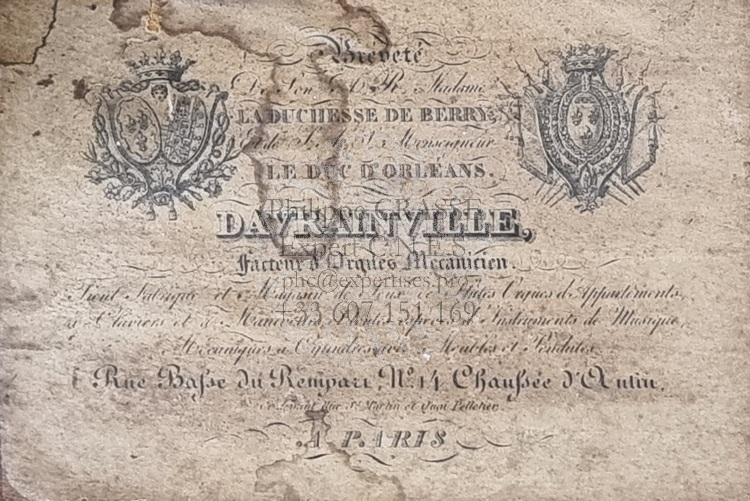 Breveté
De Son A. R. Madame
LA DUCHESSE DE BERRY,
Et de S. A. S. Monseigneur
LE DUC D'ORLÉANS.
DAVRAINVILLE,
Facteur d'Orgues Mécanicien.
Tient Fabrique et Magasin de Jeux de Flûtes Orgues d'Appartements,
à Claviers et à Manivelles, d'Instruments de Musique,
Mécaniques à Cylindres avec Meubles et Pendules.
Rue Basse du Rempart, No. 14, Chaussée d'Antin,
Ci-devant Rue St. Martin et Quai Pelletier.
A PARIS
Philippe CRASSE
Expert C.N.E.S
phc@expertises.pro
+33 607 151 169